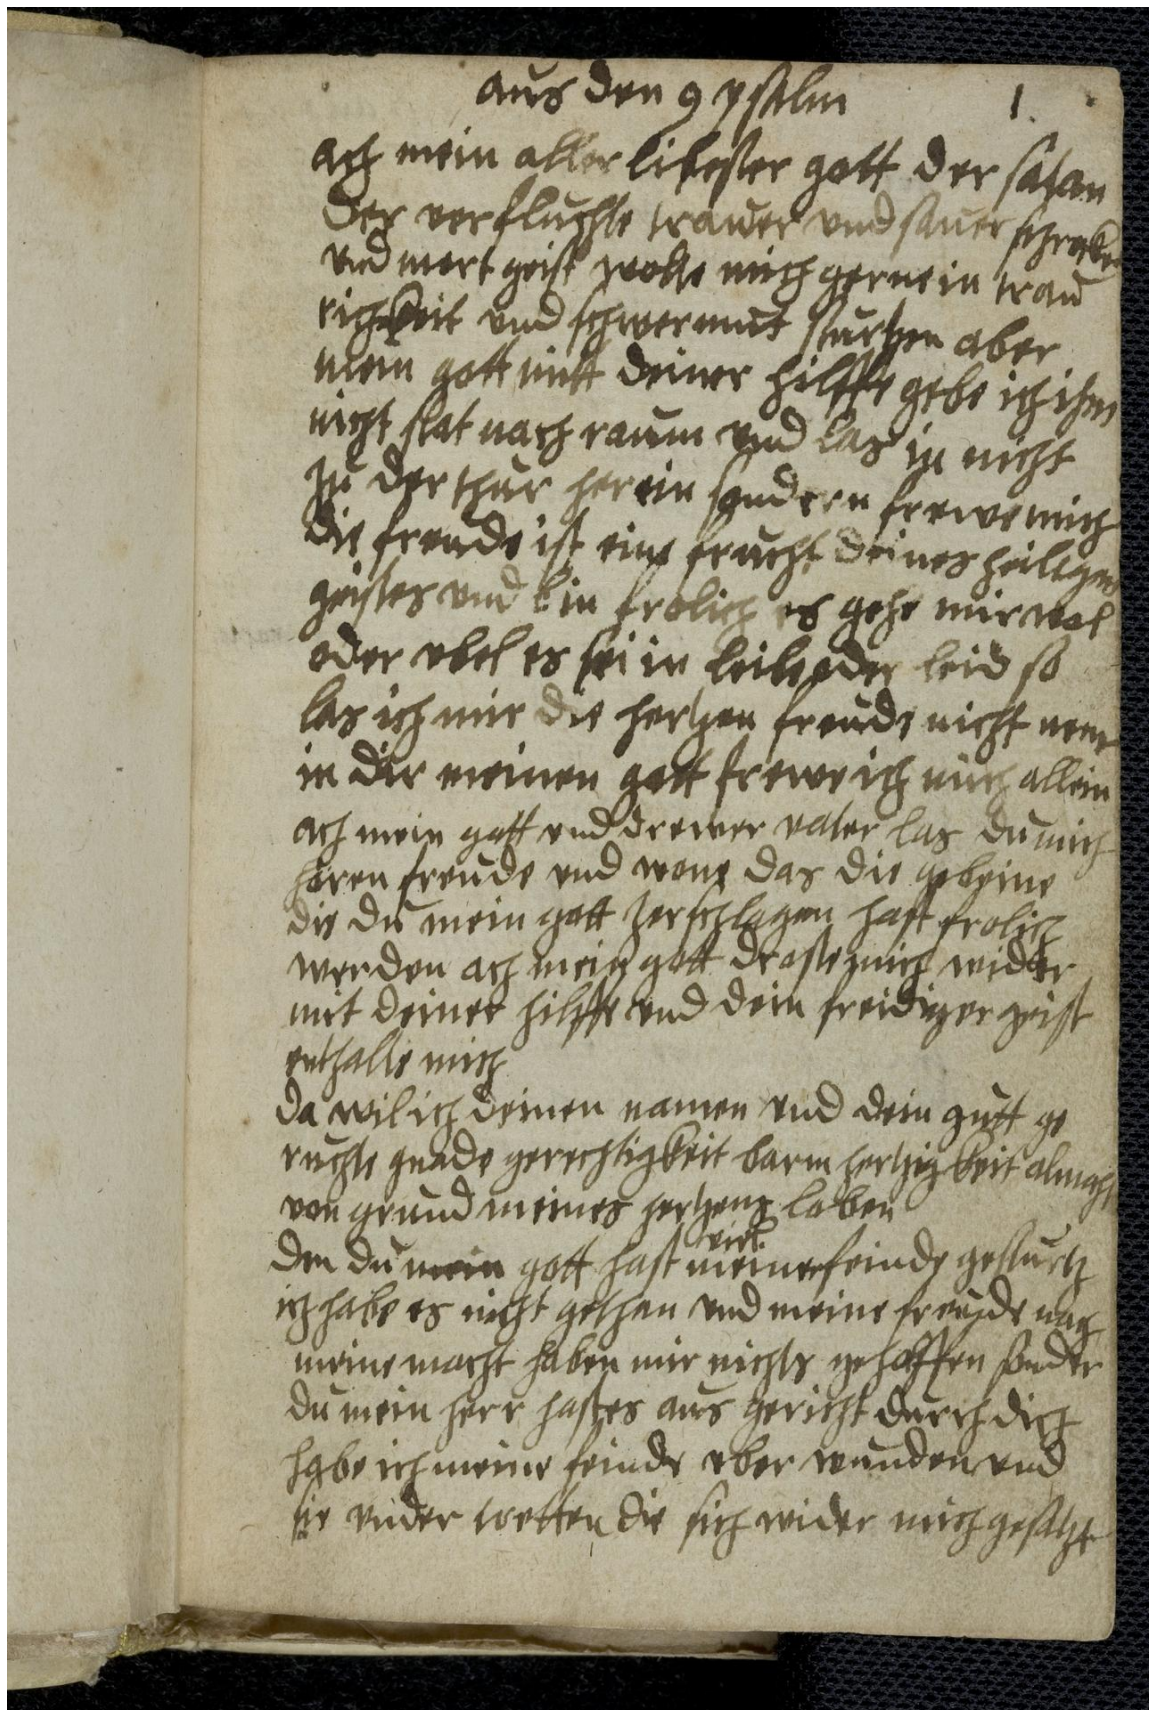 aus den 9 psalm 1.
ach mein aller libester gott der satan
der verfluchte trauer und sauer schrecken
und mort geist wolte mich gerne in trau
richkeit und schwermut sturtzen aber
mein gott mitt deiner hilffe gebe ich ihm
nicht stat nach raum und las in nicht
zu der thur herein sondern frewe mich
die freude ist eine frucht deines heiligen
geistes und bin frolich es gehe mir wol
oder ubel es sei in leib oder leid so
las ich mir die hertzen freude nicht nem
in dir meinen gott frewe ich mich allein
ach mein gott und drewer vater las du mich
horen freude und wone das die gebeine
die du mein gott zerschlagen hast frolich
werden ach mein gott droste mich wider
mit deiner hilffe und dein freidiger geist
enthalte mich
da wil ich deinen namen und dein gutt ge
ruchte gnade gerechtigkeit barmhertzigkeit almacht
von grund meines hertzens loben
den du mein gott hast viel meiner feinde gesturtz
ich habe es nicht gethan und meine freunde nach
meine macht haben mir nichts geholffen sonder
du mein herr hast es aus gericht durch dich
habe ich meine feinde uber wunden und
sie under tretten die sich wider mich gesatzt